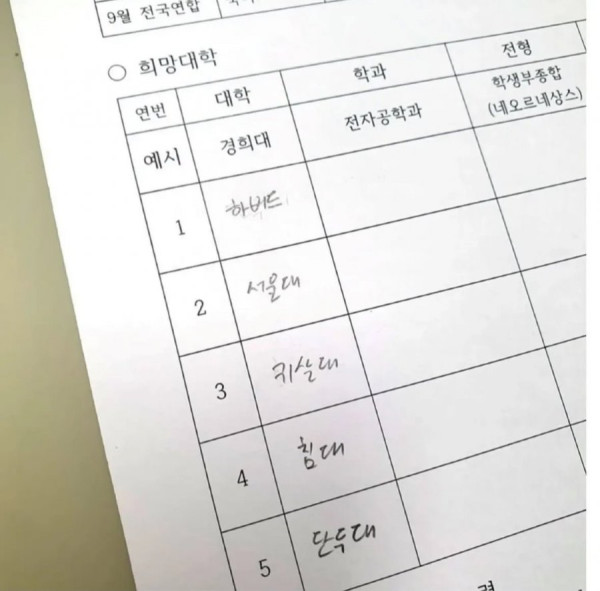 9월 전국연합
○ 희망대학
연번 대학 학과 전형
예시 경희대 전자공학과 학생부종합
(네오르네상스)
1 하버드
2 서울대
3 귀살대
4 침대
5 단두대